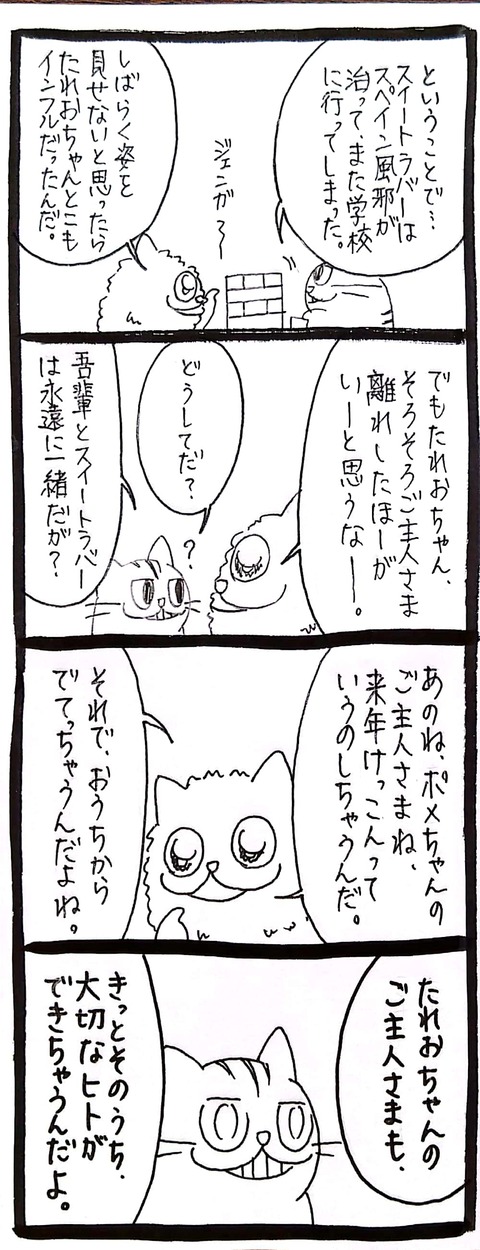 ということで…
スイートラバーは
スペイン風邪が
治って、また学校
に行ってしまった。
ジェンガ〜
しばらく姿を
見せないと思ったら
たれおちゃんとこも
インフルだったんだ。
でもたれおちゃん、
そろそろご主人さま
離れしたほーが
いーと思うなー。
どうしてだ？
？
吾輩とスイートラバー
は永遠に一緒だが？
あのね、ポメちゃんの
ご主人さまね、
来年けっこんって
いうのしちゃうんだ。
それで、おうちから
でてっちゃうんだよね。
たれおちゃんの
ご主人さまも、
きっとそのうち、
大切なヒトが
できちゃうんだよ。